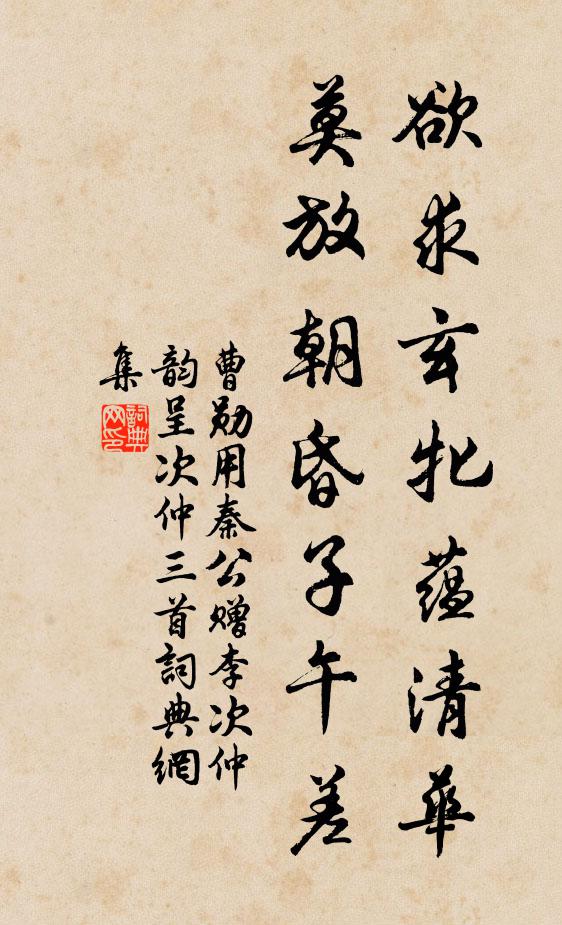 欲求玄牝蕴清華
莫放朝昏子午差
曹勛用秦公赠李次仲
韵呈次仲三首詞典網
集
詞典
网印